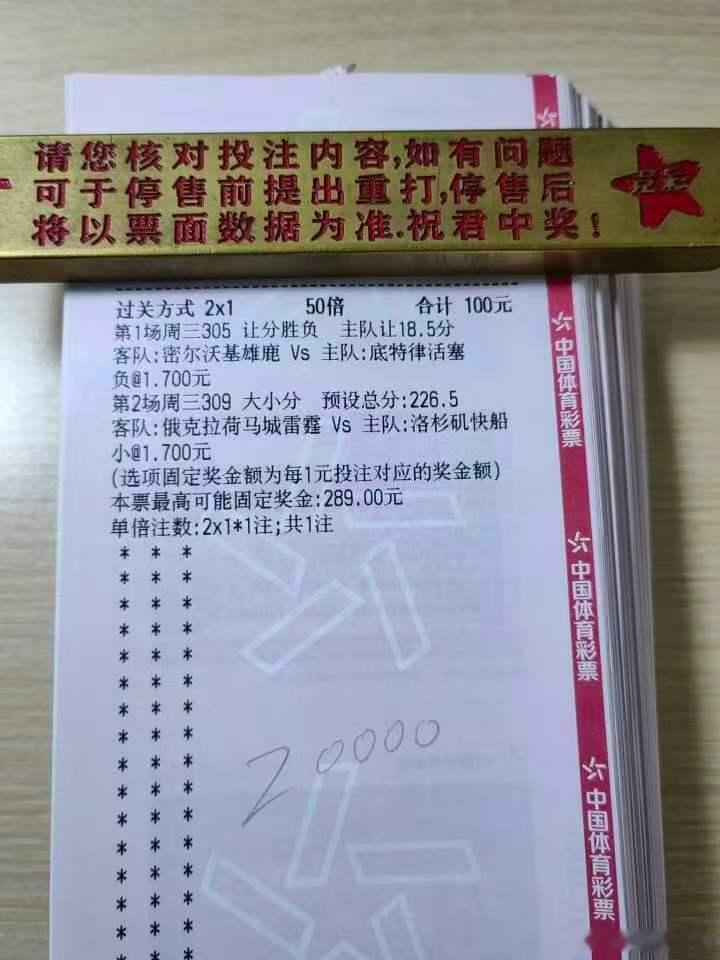 请您核对投注内容,如有问题
可于停售前提出重打,停售后
将以票面数据为准.祝君中奖!
过关方式 2x1 50倍 合计 100元
第1场周三305 让分胜负 主队让18.5分
客队:密尔沃基雄鹿 Vs 主队:底特律活塞
负@1.700元
第2场周三309 大小分 预设总分:226.5
客队:俄克拉荷马城雷霆 Vs 主队:洛杉矶快船
小@1.700元
(选项固定奖金额为每1元投注对应的奖金额)
本票最高可能固定奖金:289.00元
单倍注数:2x1*1注;共1注
* * *
* * *
* * *
* * *
* * *
* * *
* * *
* * *
* * *
* * *
* * *
* * *
* * *
* * *
* * *
* * *
20000
中国体育彩票
中国体育彩票
中国体育彩票